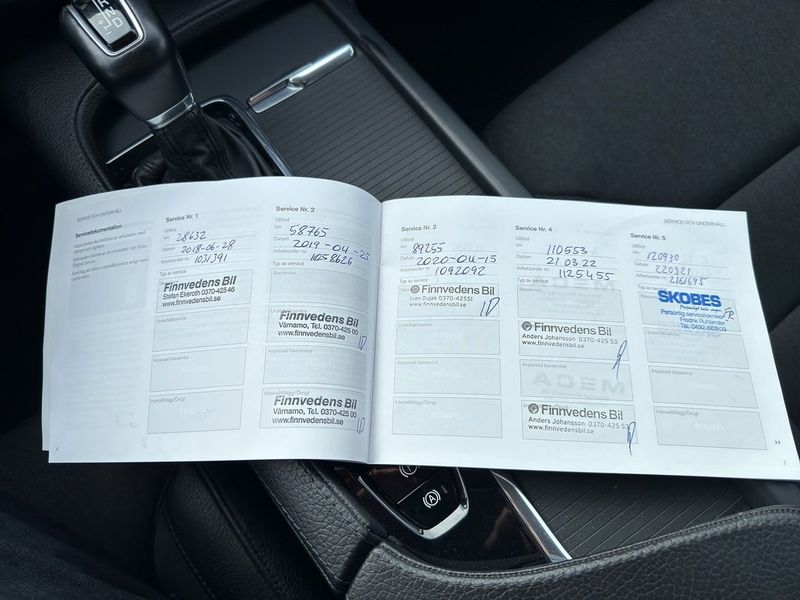 SERVICE OCH UNDERHÅLL
Servicedokumentation
Service Nr. 1
Utförd
km 28632
Datum 2018-06-28
Arbetsorder nr. 1031391
Typ av service
Finnvedens Bil
Stefan Ekeroth 0370-425 46
www.finnvedensbil.se
Underhållsservice
Anpassad basservice
Intervalltillägg/Övrigt
Service Nr. 2
Utförd
km 58765
Datum 2019-04-25
Arbetsorder nr. 1058626
Typ av service
Finnvedens Bil
Värnamo, Tel. 0370-425 00
www.finnvedensbil.se
Anpassad basservice
Intervalltillägg/Övrigt
Finnvedens Bil
Värnamo, Tel. 0370-425 00
www.finnvedensbil.se
Service Nr. 3
Utförd
km 89255
Datum 2020-04-15
Arbetsorder nr. 1092092
Typ av service
Finnvedens Bil
Ivan Dujak 0370-42551
www.finnvedensbil.se
Underhållsservice
Anpassad basservice
Intervalltillägg/Övrigt
Service Nr. 4
Utförd
km 110553
Datum 21.03.22
Arbetsorder nr. 1125455
Typ av service
Finnvedens Bil
Anders Johansson 0370-425 53
www.finnvedensbil.se
Anpassad basservice
Finnvedens Bil
Anders Johansson 0370-425 53
www.finnvedensbil.se
SERVICE OCH UNDERHÅLL
Service Nr. 5
Utförd
km 120930
Datum 220321
Arbetsorder nr. 2161695
Typ av service
SKOBES
Personlig servicetekniker
Fredrik Ruhlander
Tel. 0492-66203
FR
Anpassad basservice
Intervalltillägg/Övrigt